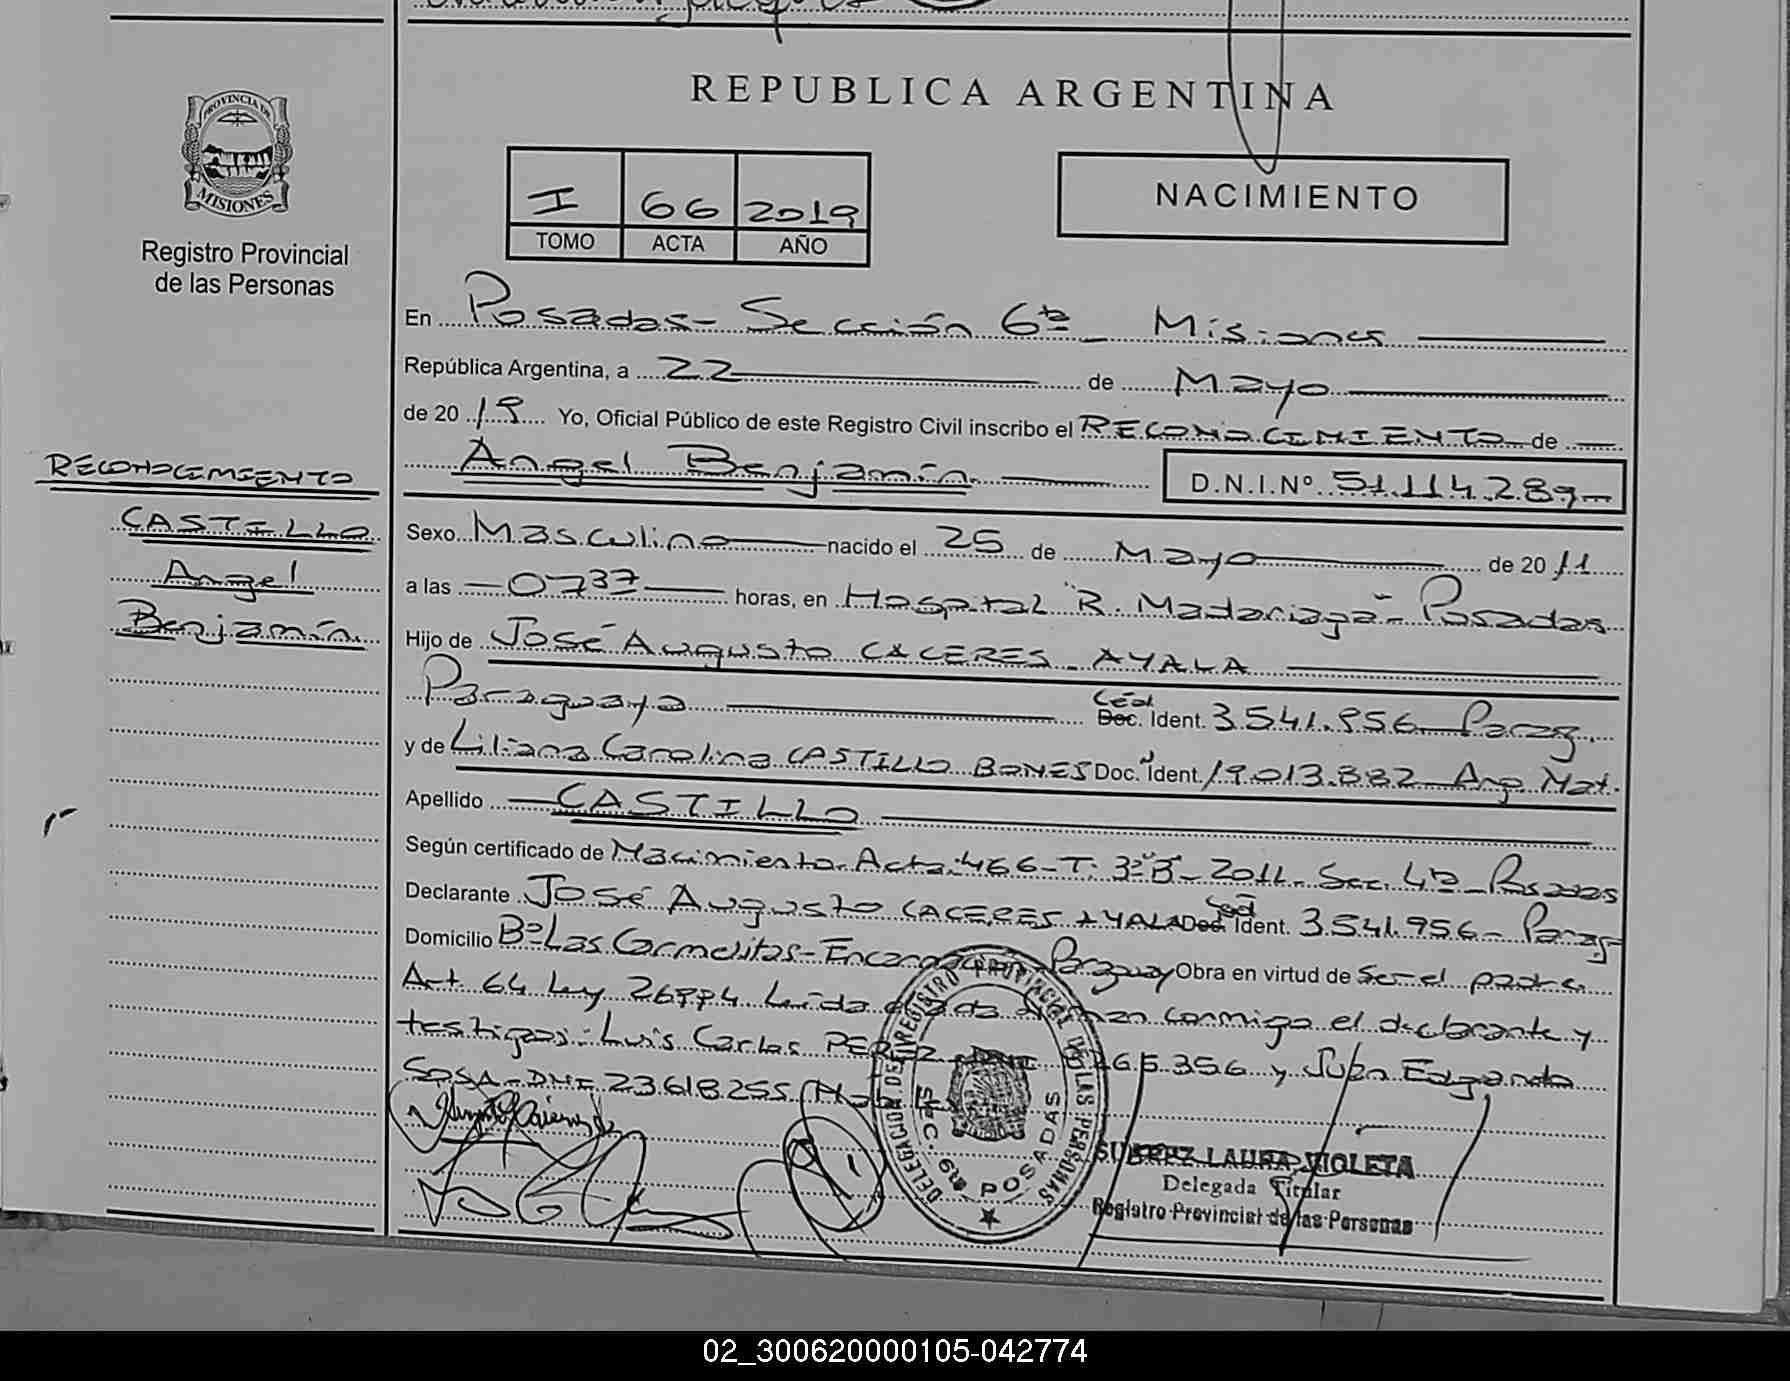 REPUBLICA ARGENTINA
PROVINCIA DE
MISIONES
Registro Provincial
de las Personas
I 66 2019
TOMO ACTA AÑO
NACIMIENTO
En Posadas - Sección 6ta - Misiones
República Argentina, a 22 de Mayo
de 2019 Yo, Oficial Público de este Registro Civil inscribo el RECONOCIMIENTO de
Angel Benjamín D.N.I.Nº 51.114.289
RECONOCIMIENTO
CASTILLO
Angel
Benjamín
Sexo Masculino nacido el 25 de Mayo de 2011
a las 0737 horas, en Hospital "R. Madariaga" - Posadas
Hijo de José Augusto CACERES AYALA
Paraguaya Céd Doc. Ident. 3.541.956 - Parag.
y de Liliana Carolina CASTILLO BONES Doc. Ident. 19.013.882 - Arg Nat.
Apellido CASTILLO
Según certificado de Nacimiento Acta: 466 - T: 3º"B" - 2011 - Sec. 4ta - Posadas
Declarante José Augusto CACERES AYALA Doc Céd Ident. 3.541.956 - Parag
Domicilio Bº Las Carmelitas - Paraguay Obra en virtud de ser el padre
Art 64 Ley 26994 Leída conmigo el declarante y
testigos: Luis Carlos 65.356 y Juan Edgardo
SOSA - DNI 23.618.255
DELEGACION DEL REGISTRO PROVINCIAL DE LAS PERSONAS
SEC. 6ta POSADAS
LAURA VIOLETA
Delegada Titular
Registro Provincial de las Personas
02_300620000105-042774